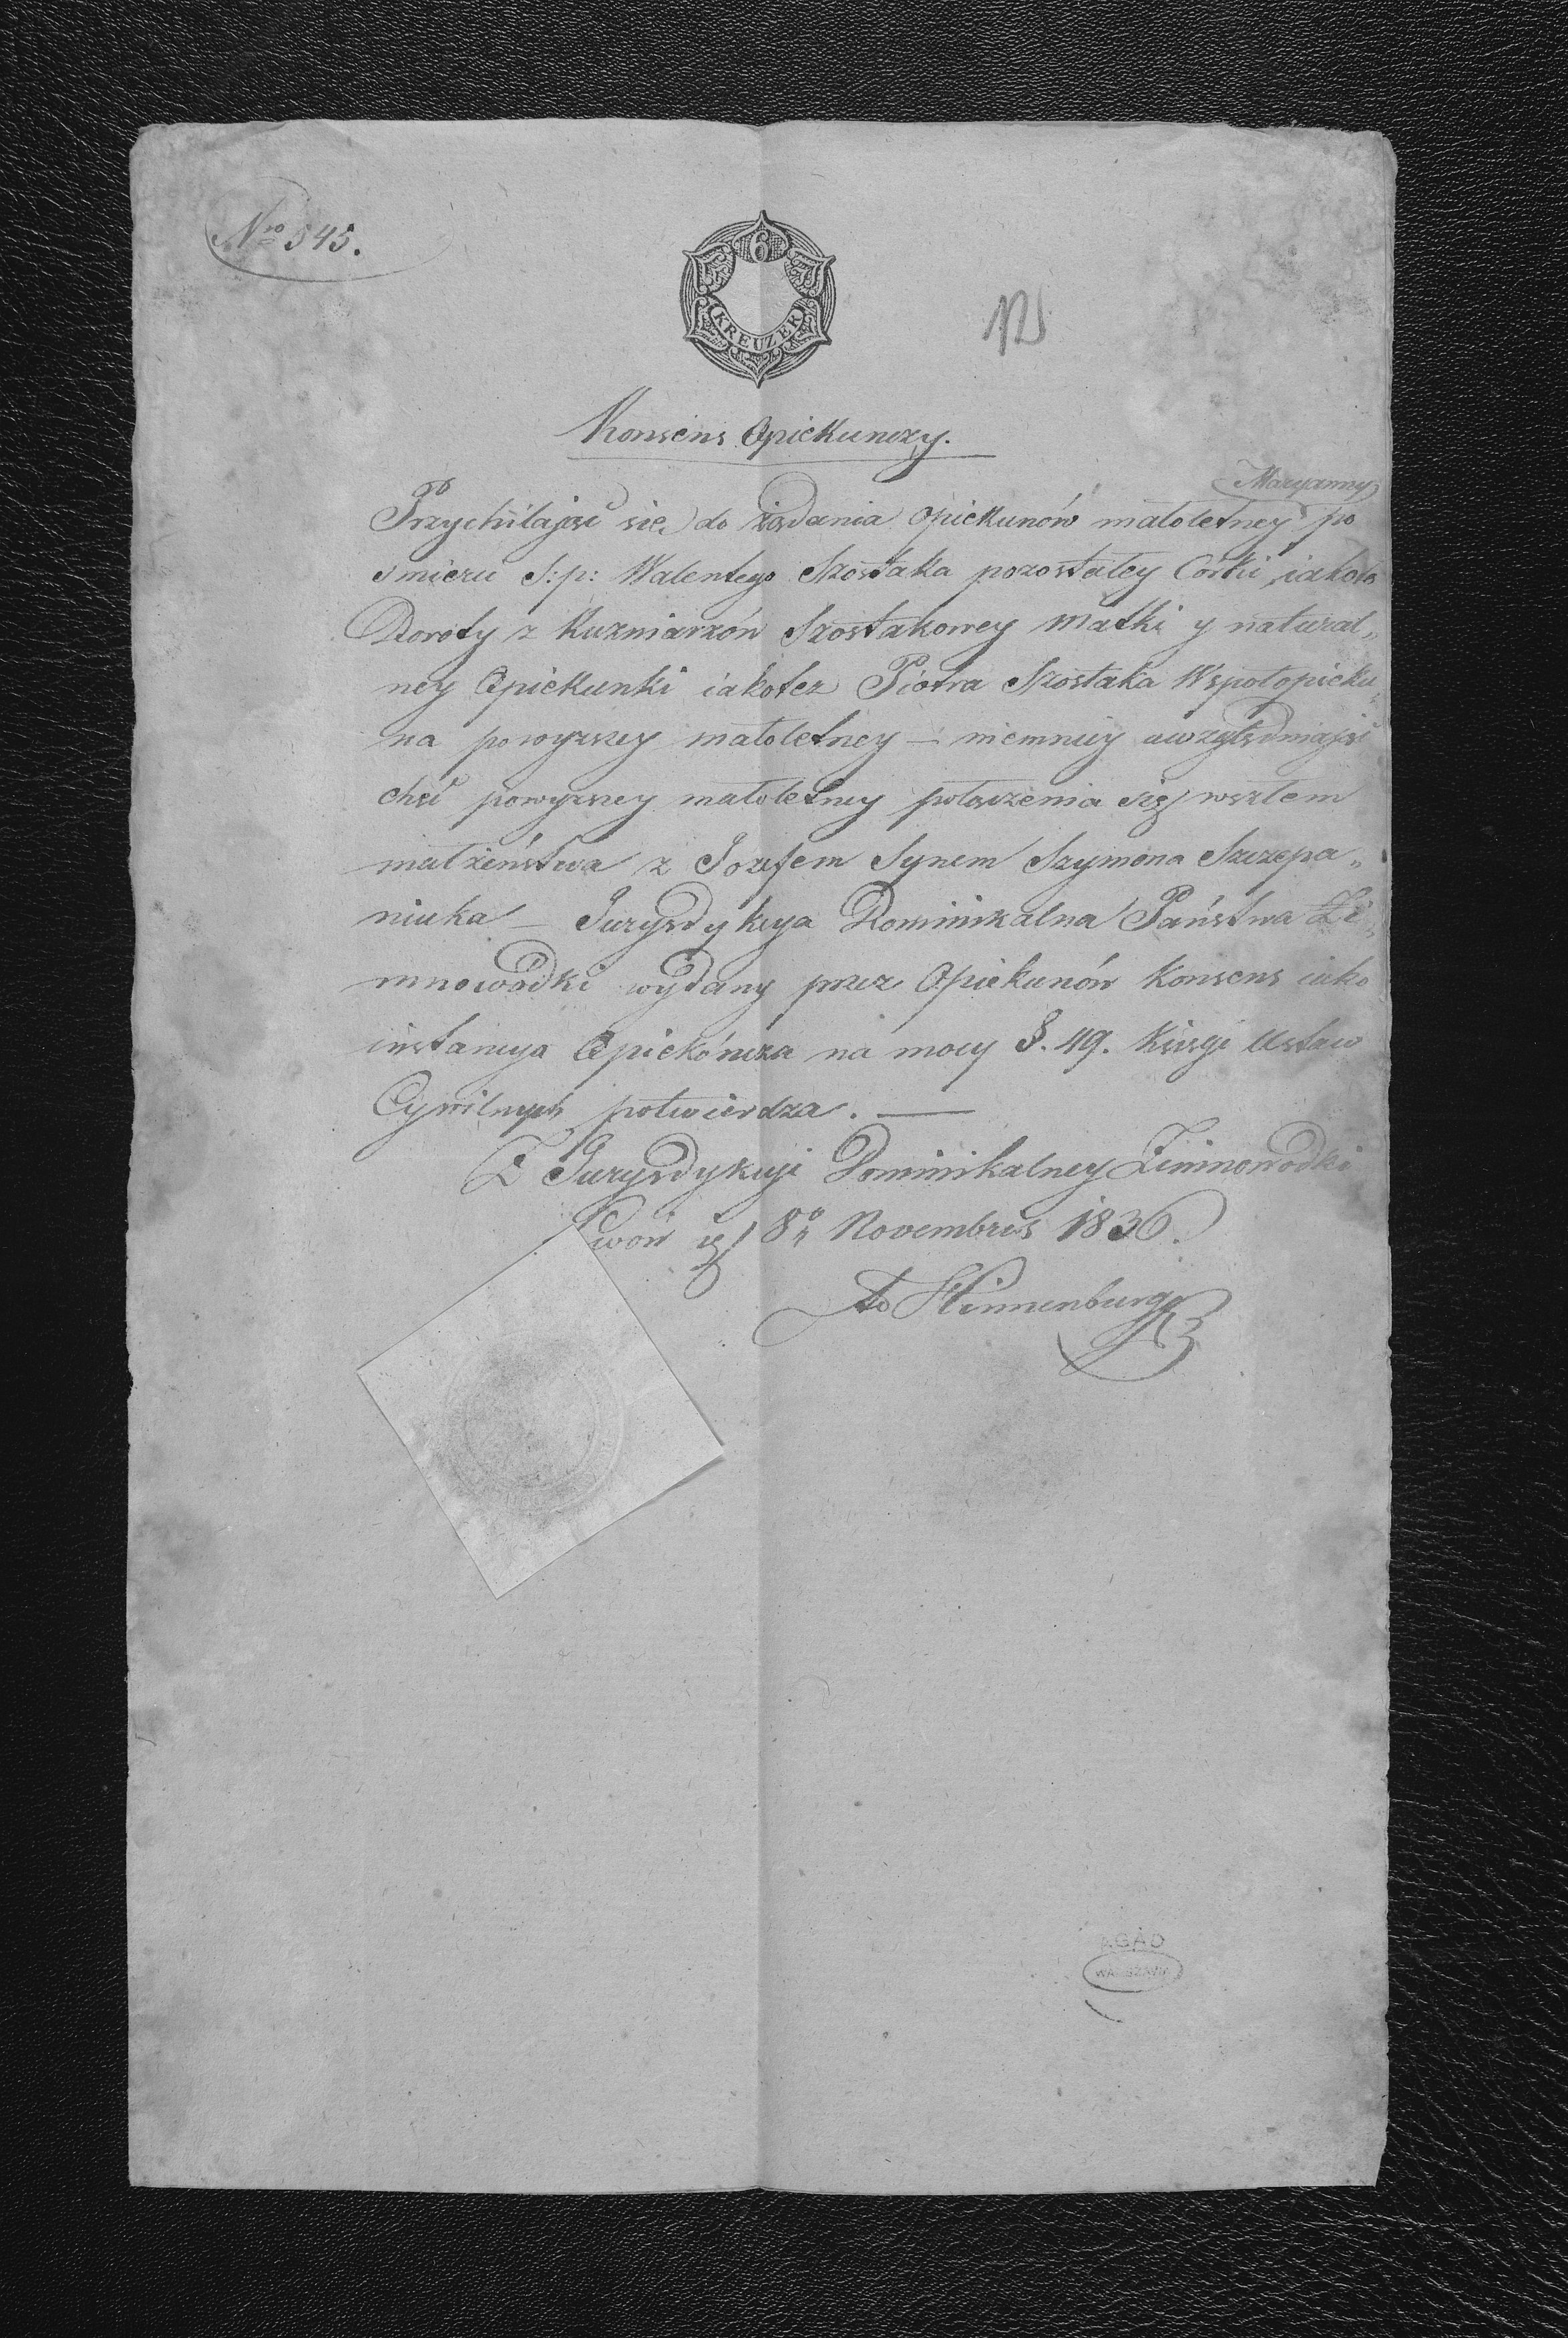 Nro 545.
6
KREUZER
Konsens Opiekunczy.
Maryanny
Przychilaiąć się do żądania opiekunów małoletney po
smierci S:p: Walentego Szostaka pozostałey Corki, iakoto
Doroty z Kuzniarzón Szostakowey Matki y natural„
ney Opiekunki iakotez Piotra Szostaka Wspołopieku„
na powyzszey małoletney — niemniey uwzględniaiąć
chęć powyzszey małoletney połączenia się węzłem
małżeństwa z Jozefem Synem Szymona Szczepa„
niuka — Jurysdykcya Dominikalna Państwa Zi„
mnowódki wydany przez Opiekunów Konsens iako
instancya Opiekóncza na mocy §. 49. Księgi Ustaw
Cywilnych potwierdza. —
Z Jurysdykcyi Dominikalney Zimnowodki
Lwów 8 Novembris 1836.
AGAD
WARSZAWA